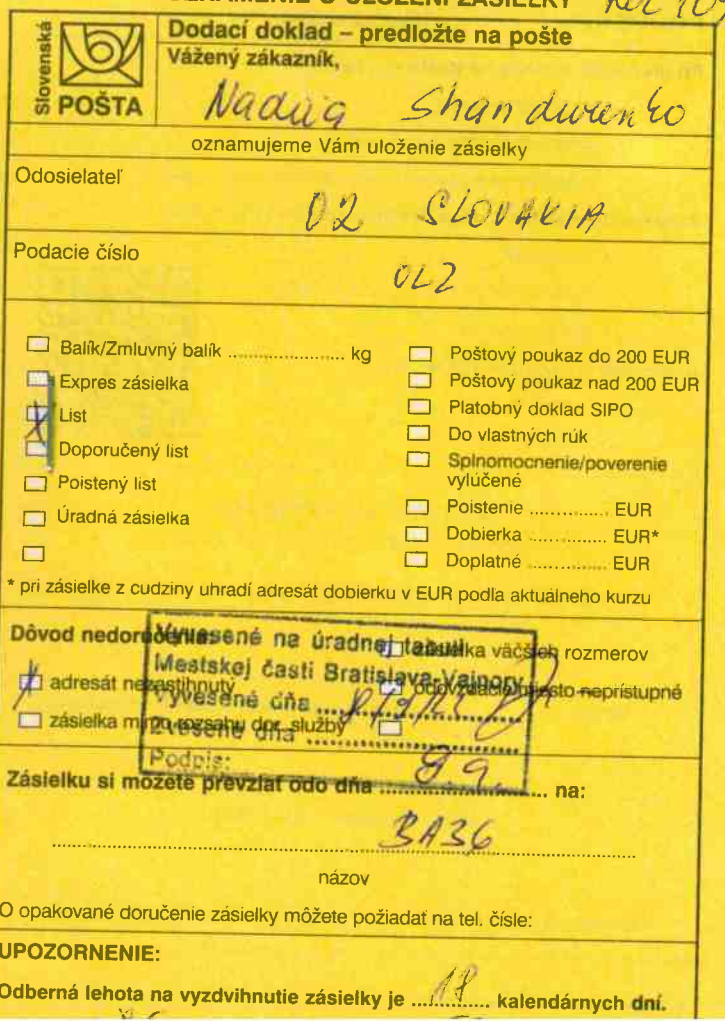 OZNÁMENIE O ULOŽENÍ ZÁSIELKY
Slovenská
POŠTA
Dodací doklad – predložte na pošte
Vážený zákazník,
Nadiia Shandurenko
oznamujeme Vám uloženie zásielky
Odosielateľ
O2 SLOVAKIA
Podacie číslo
OLZ
Balík/Zmluvný balík ........................ kg
Expres zásielka
List
Doporučený list
Poistený list
Úradná zásielka
Poštový poukaz do 200 EUR
Poštový poukaz nad 200 EUR
Platobný doklad SIPO
Do vlastných rúk
Splnomocnenie/poverenie
vylúčené
Poistenie ............... EUR
Dobierka ............... EUR*
Doplatné ............... EUR
* pri zásielke z cudziny uhradí adresát dobierku v EUR podla aktuálneho kurzu
Dôvod nedoručenia:
zásielka väčších rozmerov
adresát nezastihnutý
odovzdacie miesto neprístupné
zásielka mimo rozsahu dor. služby
Vyvesené na úradnej tabuli
Mestskej časti Bratislava-Vajnory
Vyvesené dňa
Zvesené dňa
Podpis:
Zásielku si môžete prevziať odo dňa 9.9. na:
BA36
názov
O opakované doručenie zásielky môžete požiadať na tel. čísle:
UPOZORNENIE:
Odberná lehota na vyzdvihnutie zásielky je 18 kalendárnych dní.